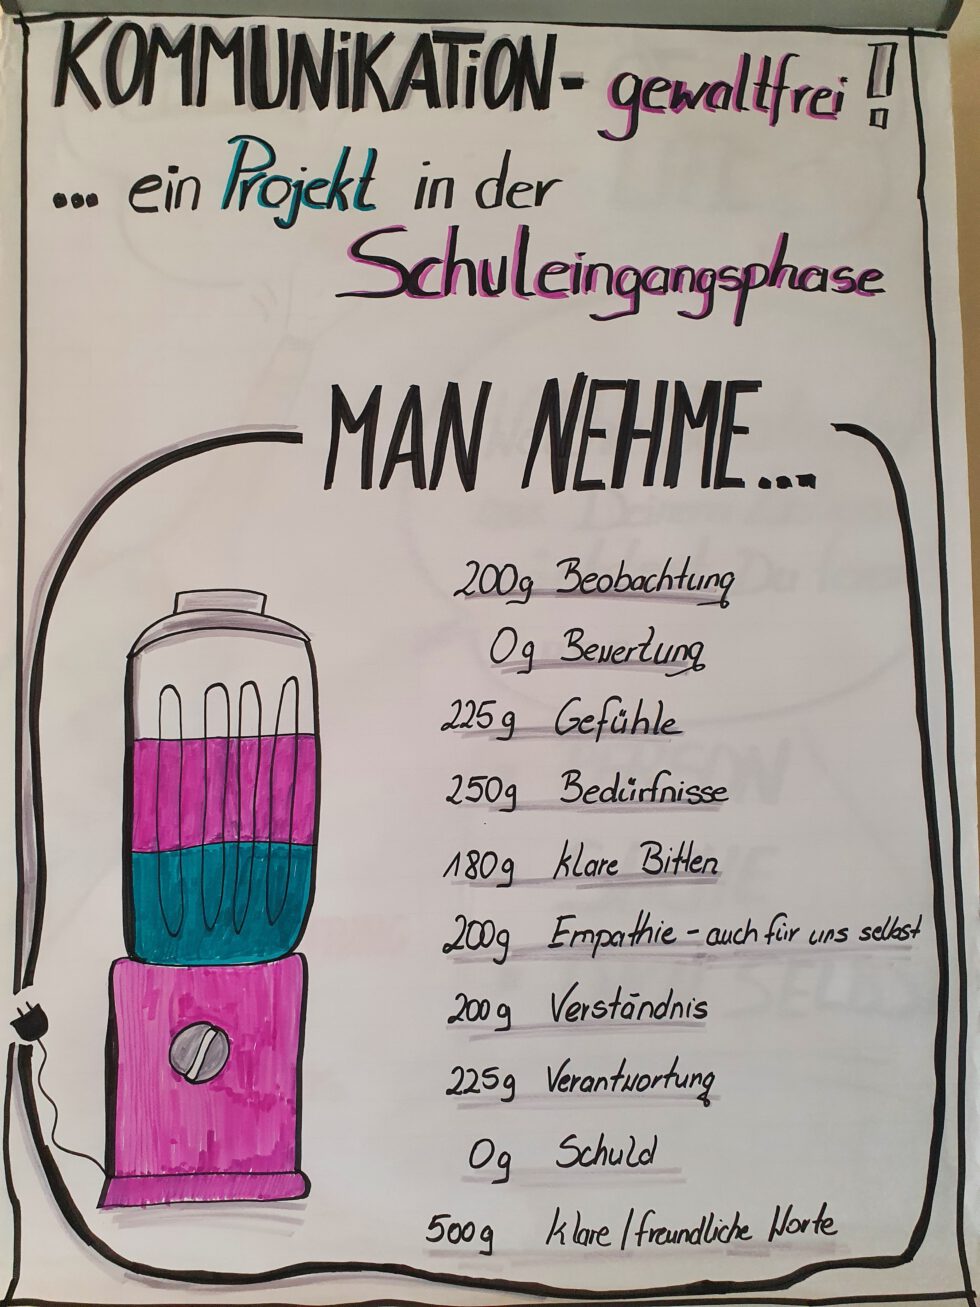 KOMMUNiKATiON - gewaltfrei!
... ein Projekt in der
Schuleingangsphase
MAN NEHME...
200g Beobachtung
0g Bewertung
225g Gefühle
250g Bedürfnisse
180g klare Bitten
200g Empathie - auch für uns selbst
200g Verständnis
225g Verantwortung
0g Schuld
500g klare/freundliche Worte